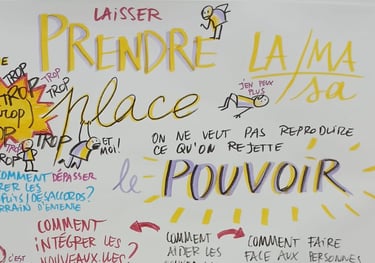 LAISSER
PRENDRE LA/MA/sa
place
J'EN PEUX PLUS
TROP
TROP
TROP
TROP
TROP
TROP
ET MOI!
ON NE VEUT PAS REPRODUIRE
CE QU'ON REJETTE
le POUVOIR
COMMENT DÉPASSER
LES
DÉSACCORDS?
COMMENT
INTÉGRER LES
NOUVEAUX.LLES?
COMMENT
AIDER LES
COMMENT FAIRE
FACE AUX PERSONNES